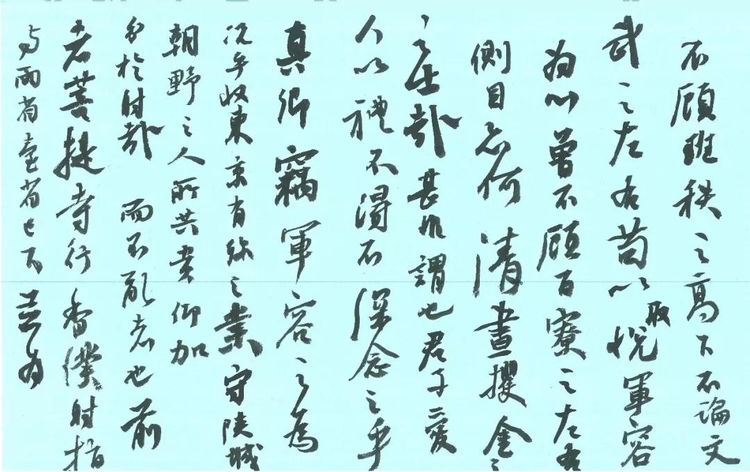 不顧班秩之高下不論文
武之左右苟以取悦軍容
為心曾不顧百寮之左右
側目亦何清晝攫金之
之士哉甚非謂也君子愛
人以禮不得不深念之乎
真卿竊軍容之為
况乎收東京有殄之業守陝城
朝野之人所共貴仰加
分於射哉而不亂者也前
者菩提寺行香僕射指
与兩省臺省已下並為